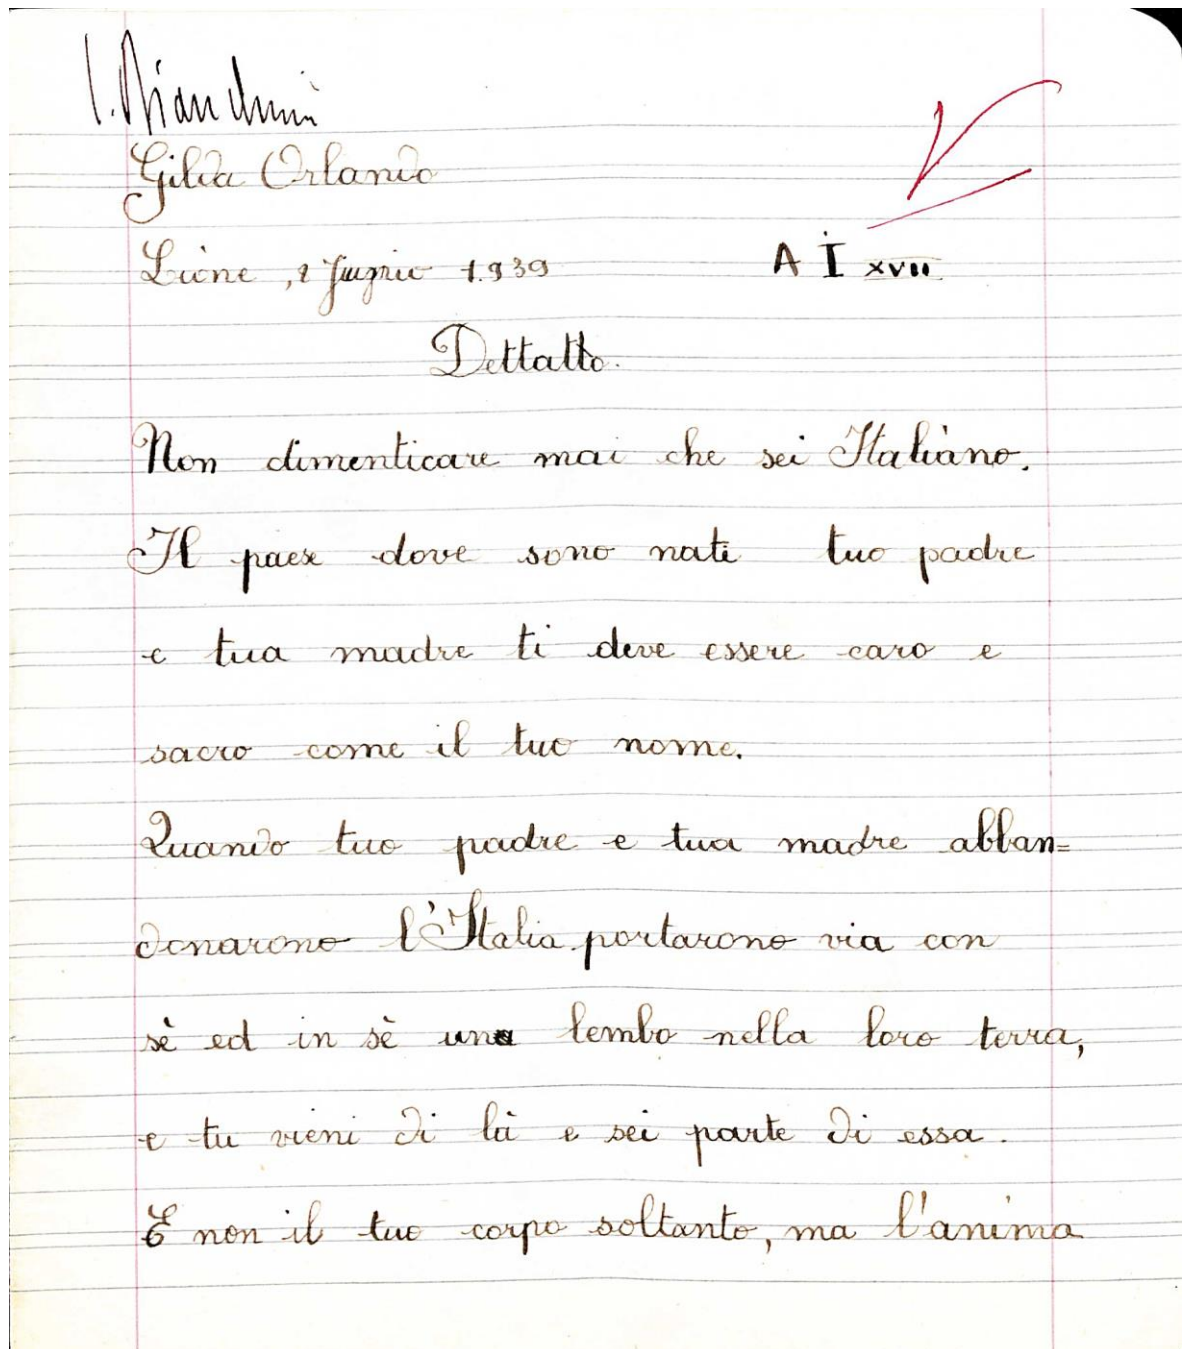 Gilda Orlando
Lione, 2 Giugnio 1.939 A I XVII
Dettatto.
Non dimenticare mai che sei Italiano.
Il paese dove sono nati tuo padre
e tua madre ti deve essere caro e
sacro come il tuo nome.
Quando tuo padre e tua madre abban=
donarono l'Italia portarono via con
sè ed in sè una lembo nella loro terra,
e tu vieni di là e sei parte di essa.
E non il tuo corpo soltanto, ma l'anima